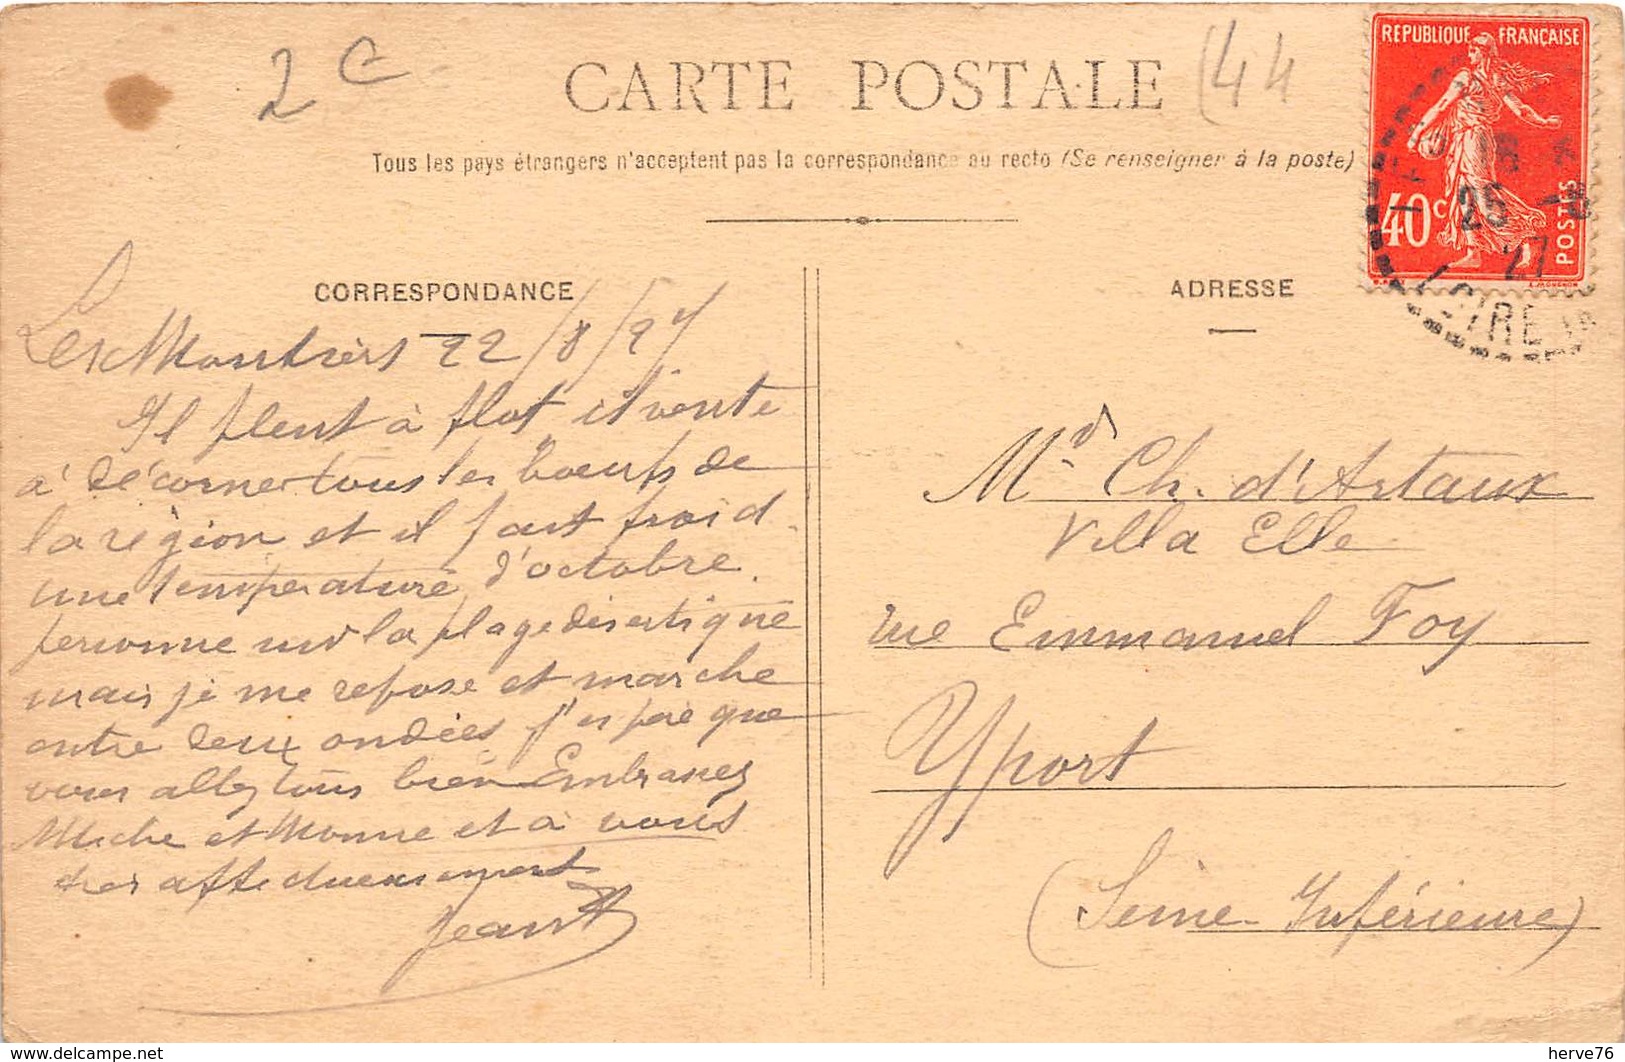 2 e
CARTE POSTALE
(44
Tous les pays étrangers n'acceptent pas la correspondance au recto (Se renseigner à la poste)
REPUBLIQUE FRANÇAISE
40c
POSTES
18
25 -8
27
LOIRE
CORRESPONDANCE
Les Moutiers 22/8/27
Il pleut à flot il vente
à décorner tous les boeufs de
la région et il fait froid
une température d'octobre.
personne sur la plage désertique
mais je me repose et marche
entre deux ondées j'espère que
vous allez tous bien Embrassez
Miche et Monne et à vous
très affectueusement
Jean
ADRESSE
Md Ch. d'Artaux
Villa Elle
rue Emmanuel Foy
Yport
(Seine Inférieure)
www.delcampe.net
herve76